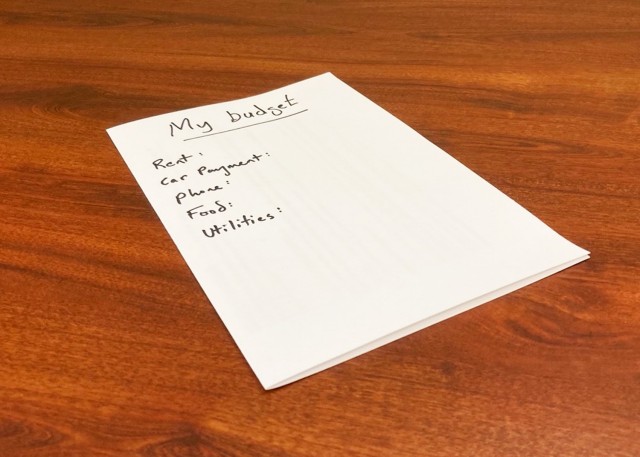 My budget
Rent:
Car Payment:
Phone:
Food:
Utilities: